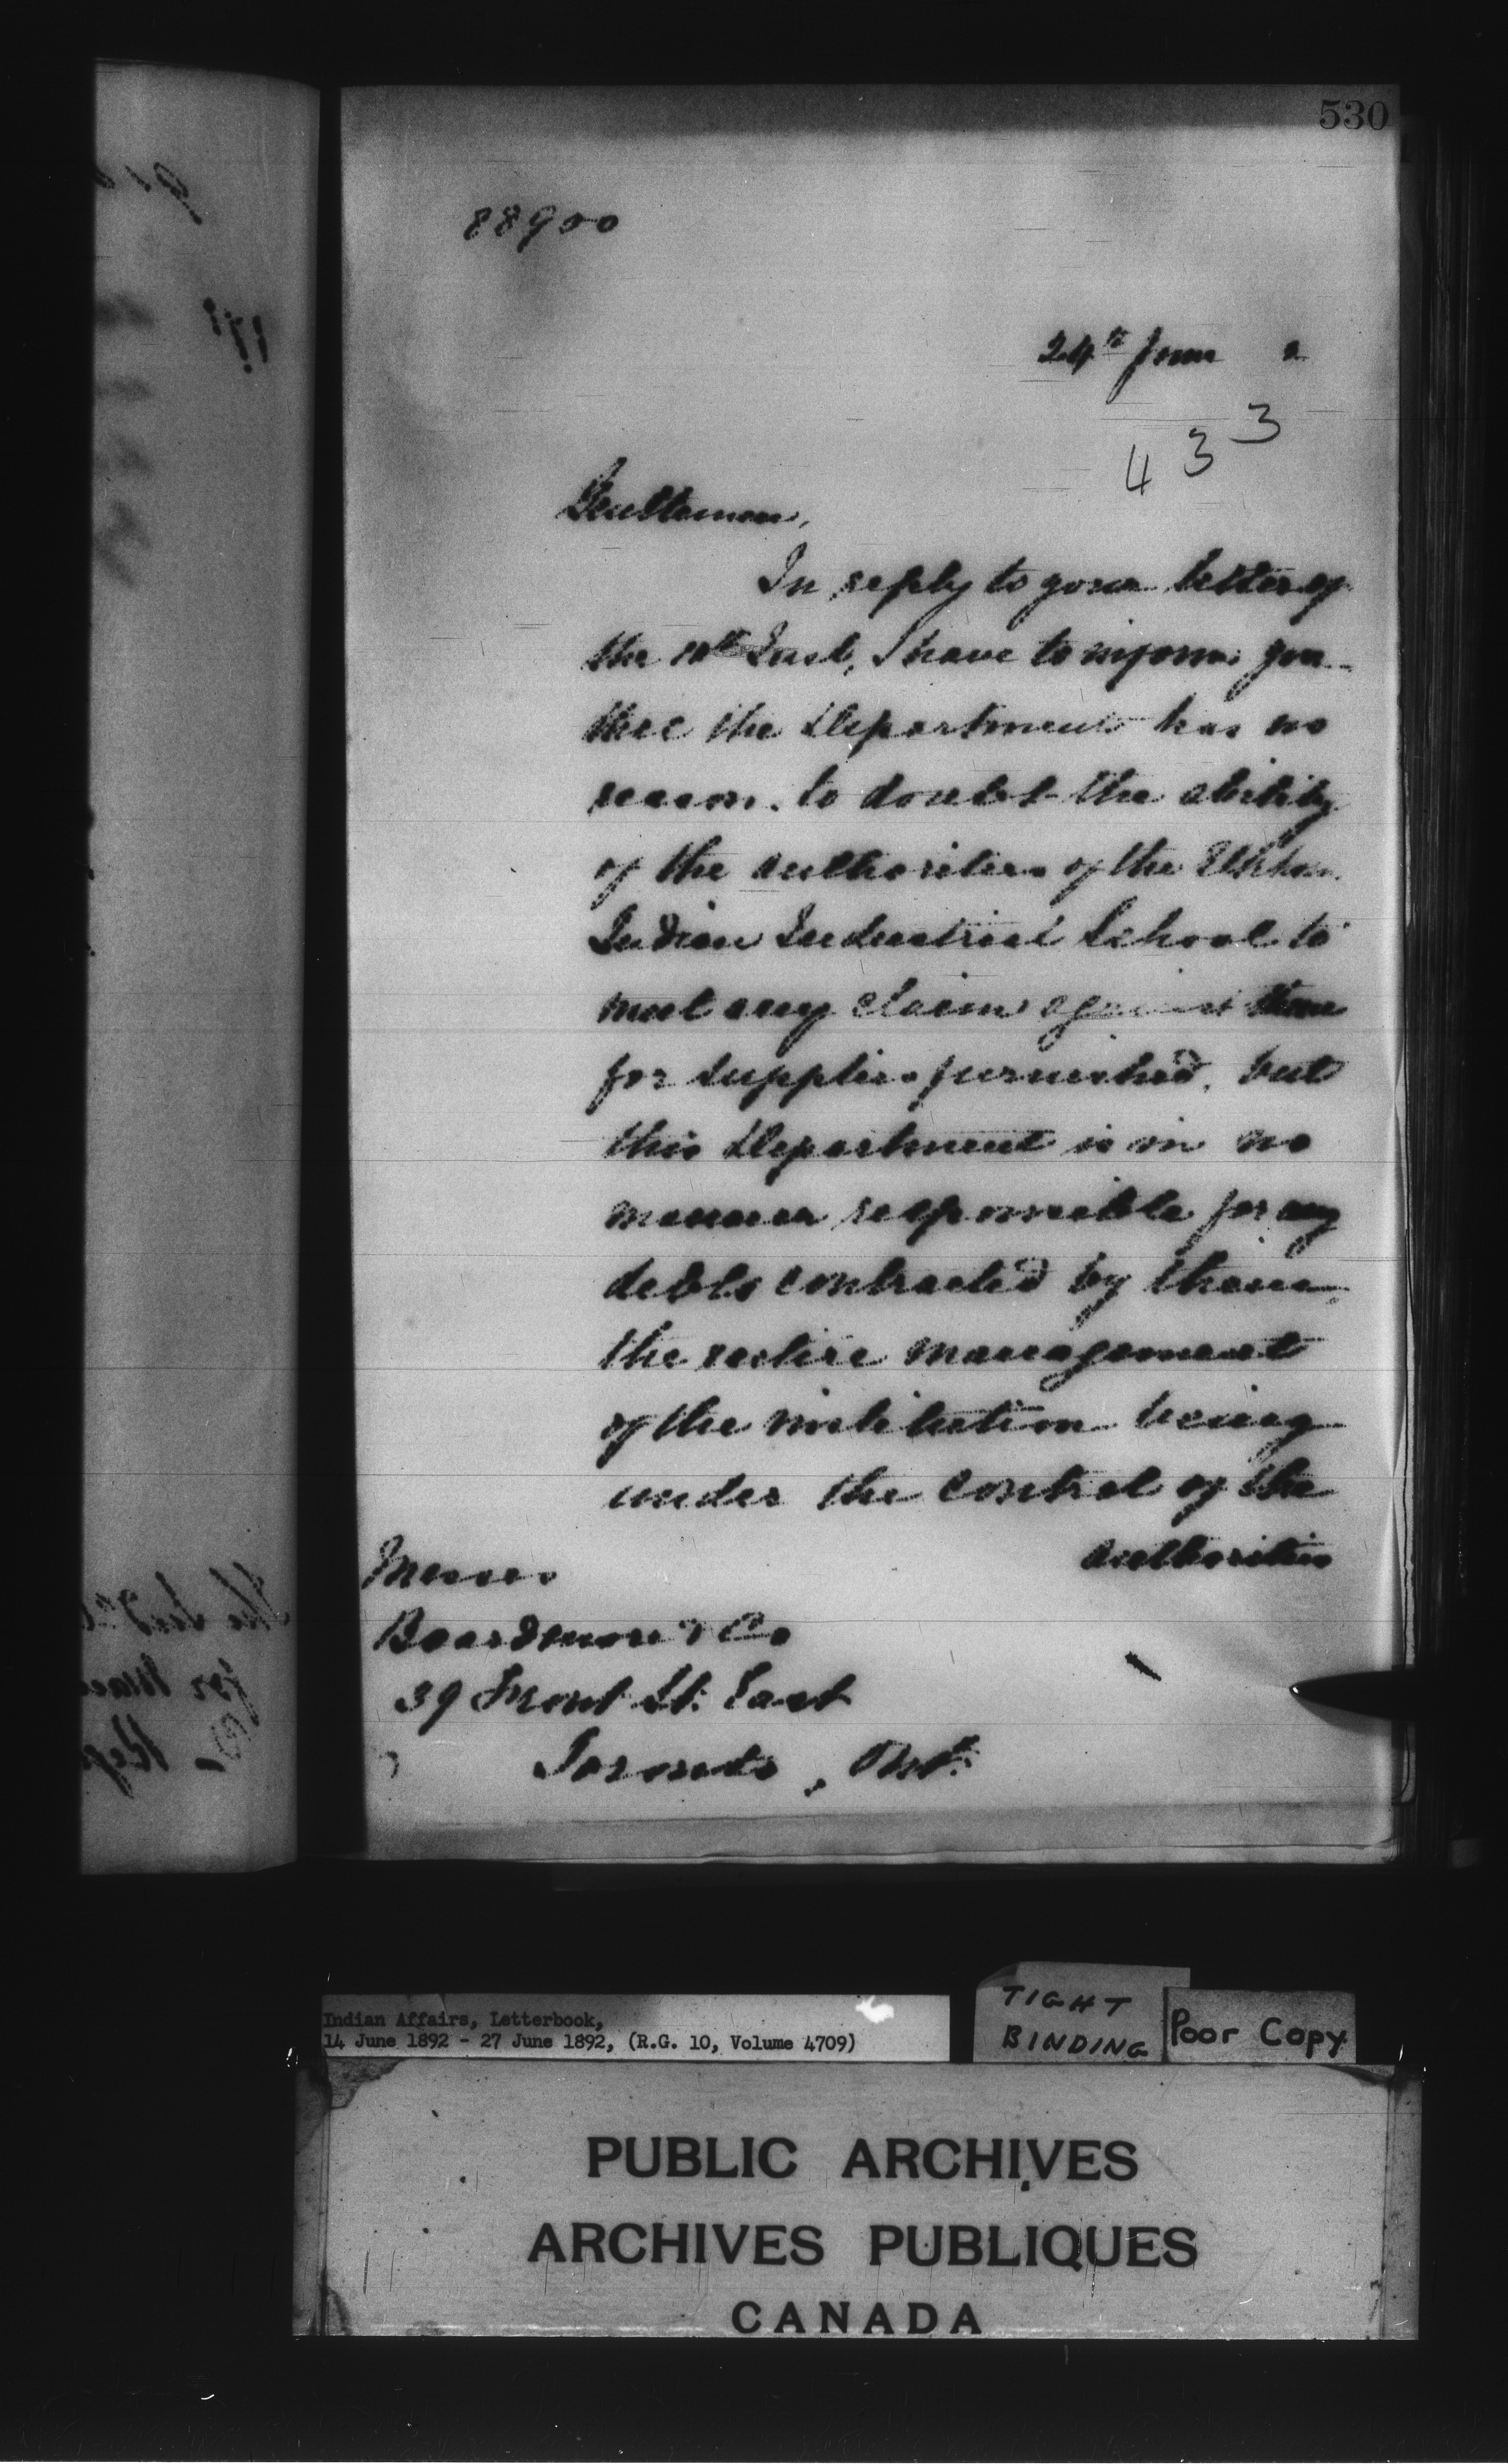 530
88900
24th June 2
433
Gentlemen,
In reply to your letter of
the Inst, I have to inform you
that the Department has no
reason to doubt the ability
of the authorities of the Elkhorn
Indian Industrial School to
meet any claim against them
for supplies furnished, but
this Department is in no
manner responsible for any
debts contracted by them,
the entire management
of the institution being
under the control of the
authorities
Messrs
Beardmore & Co
39 Front St. East
Toronto, Ont.
Indian Affairs, Letterbook,
14 June 1892 - 27 June 1892, (R.G. 10, Volume 4709)
TIGHT
BINDING
Poor Copy
PUBLIC ARCHIVES
ARCHIVES PUBLIQUES
CANADA